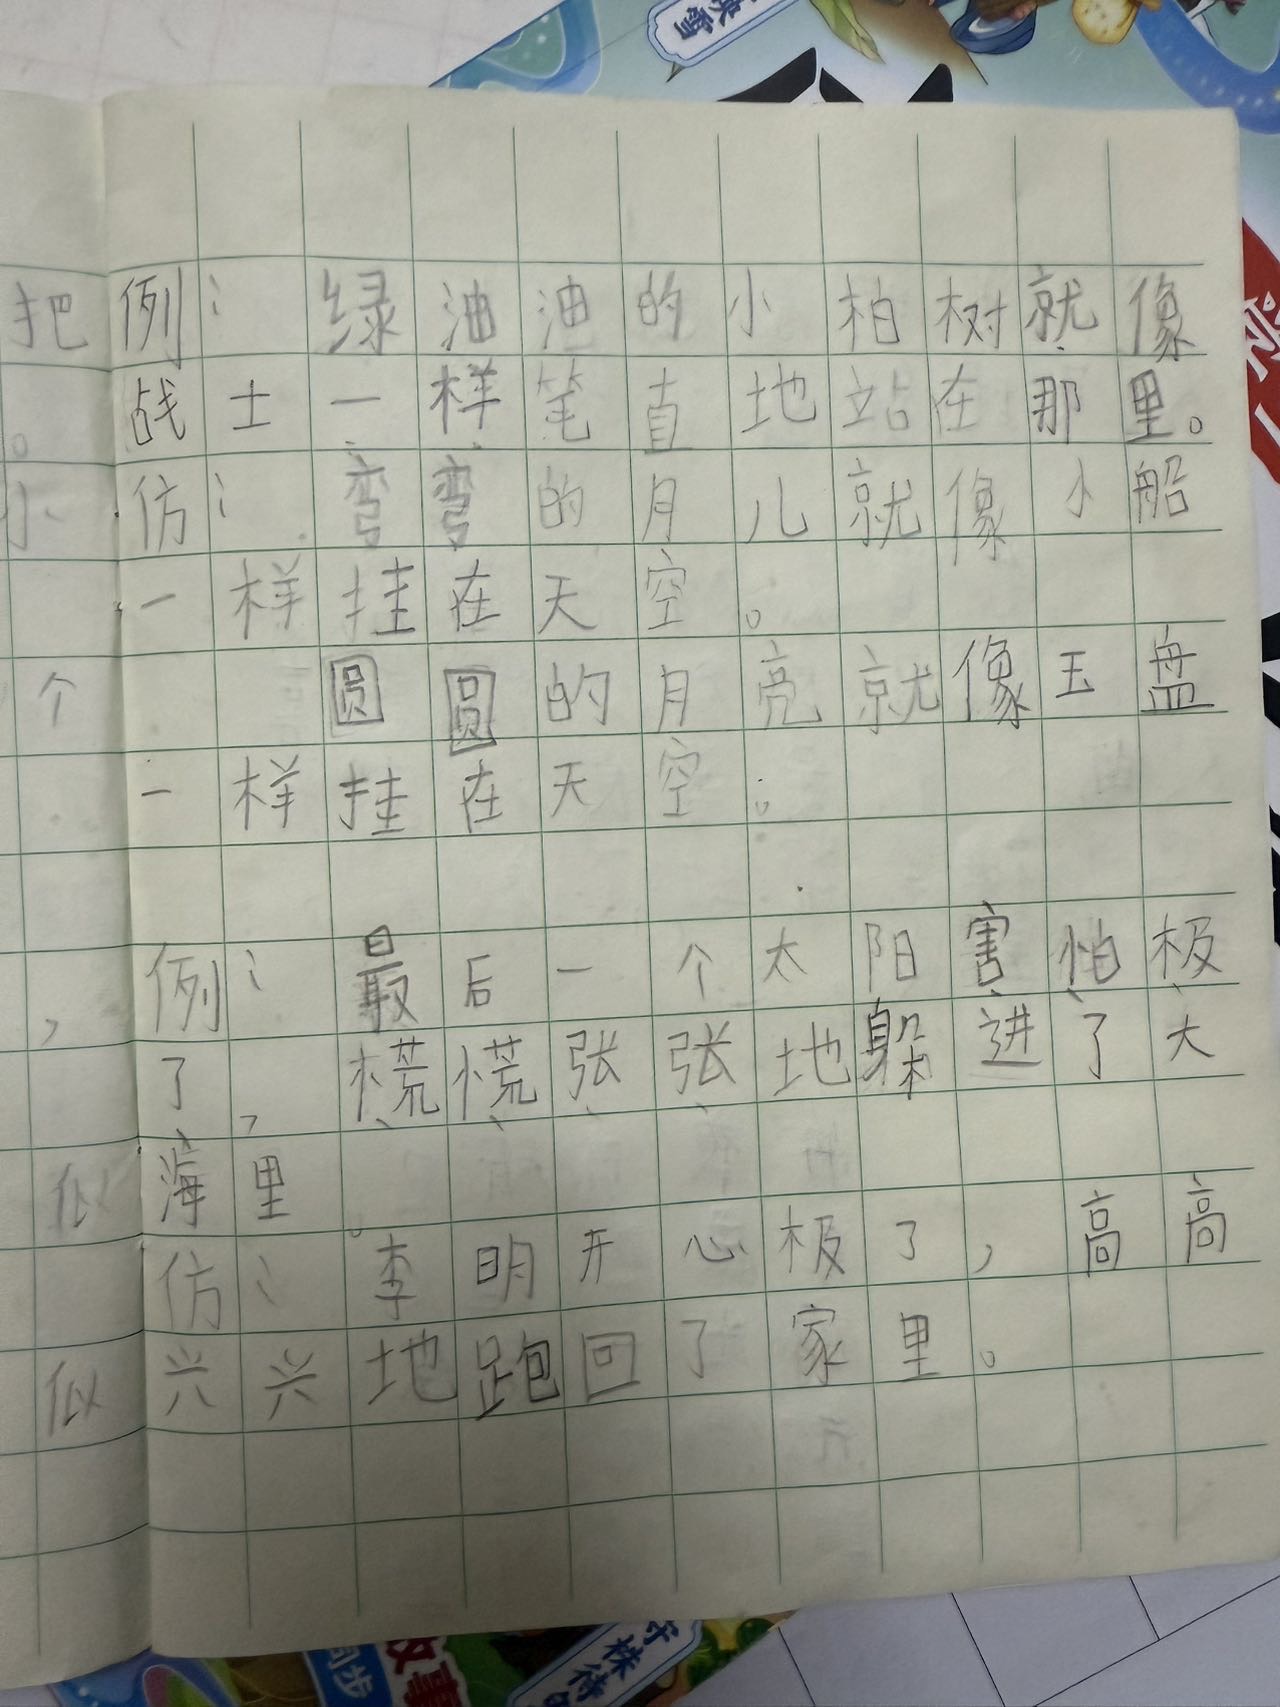 映雪
把
。
小
个
，
似
似
例：绿油油的小柏树就像
战士一样笔直地站在那里。
仿：弯弯的月儿就像小船
一样挂在天空。
圆圆的月亮就像玉盘
一样挂在天空。
例：最后一个太阳害怕极
了，慌慌张张地躲进了大
海里。
仿：李明开心极了，高高
兴兴地跑回了家里。
守株待
故事
同步